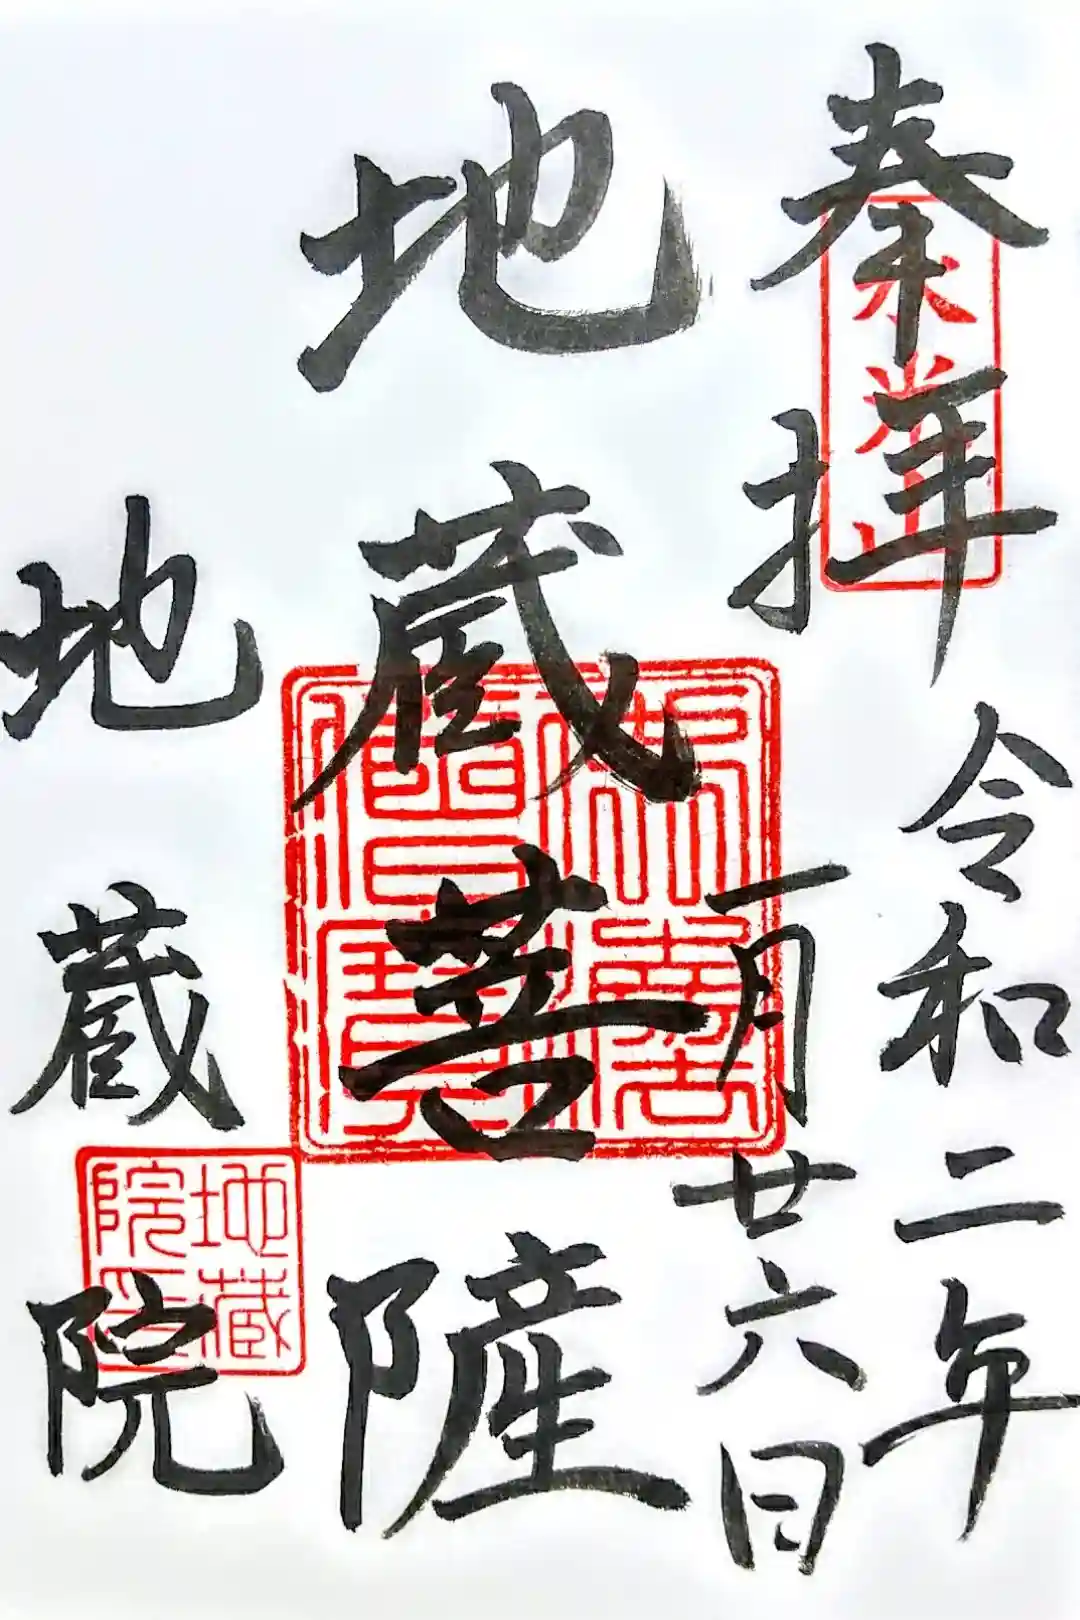 奉拝
令和二年
一月廿六日
地蔵菩薩
地蔵院
地蔵
院印